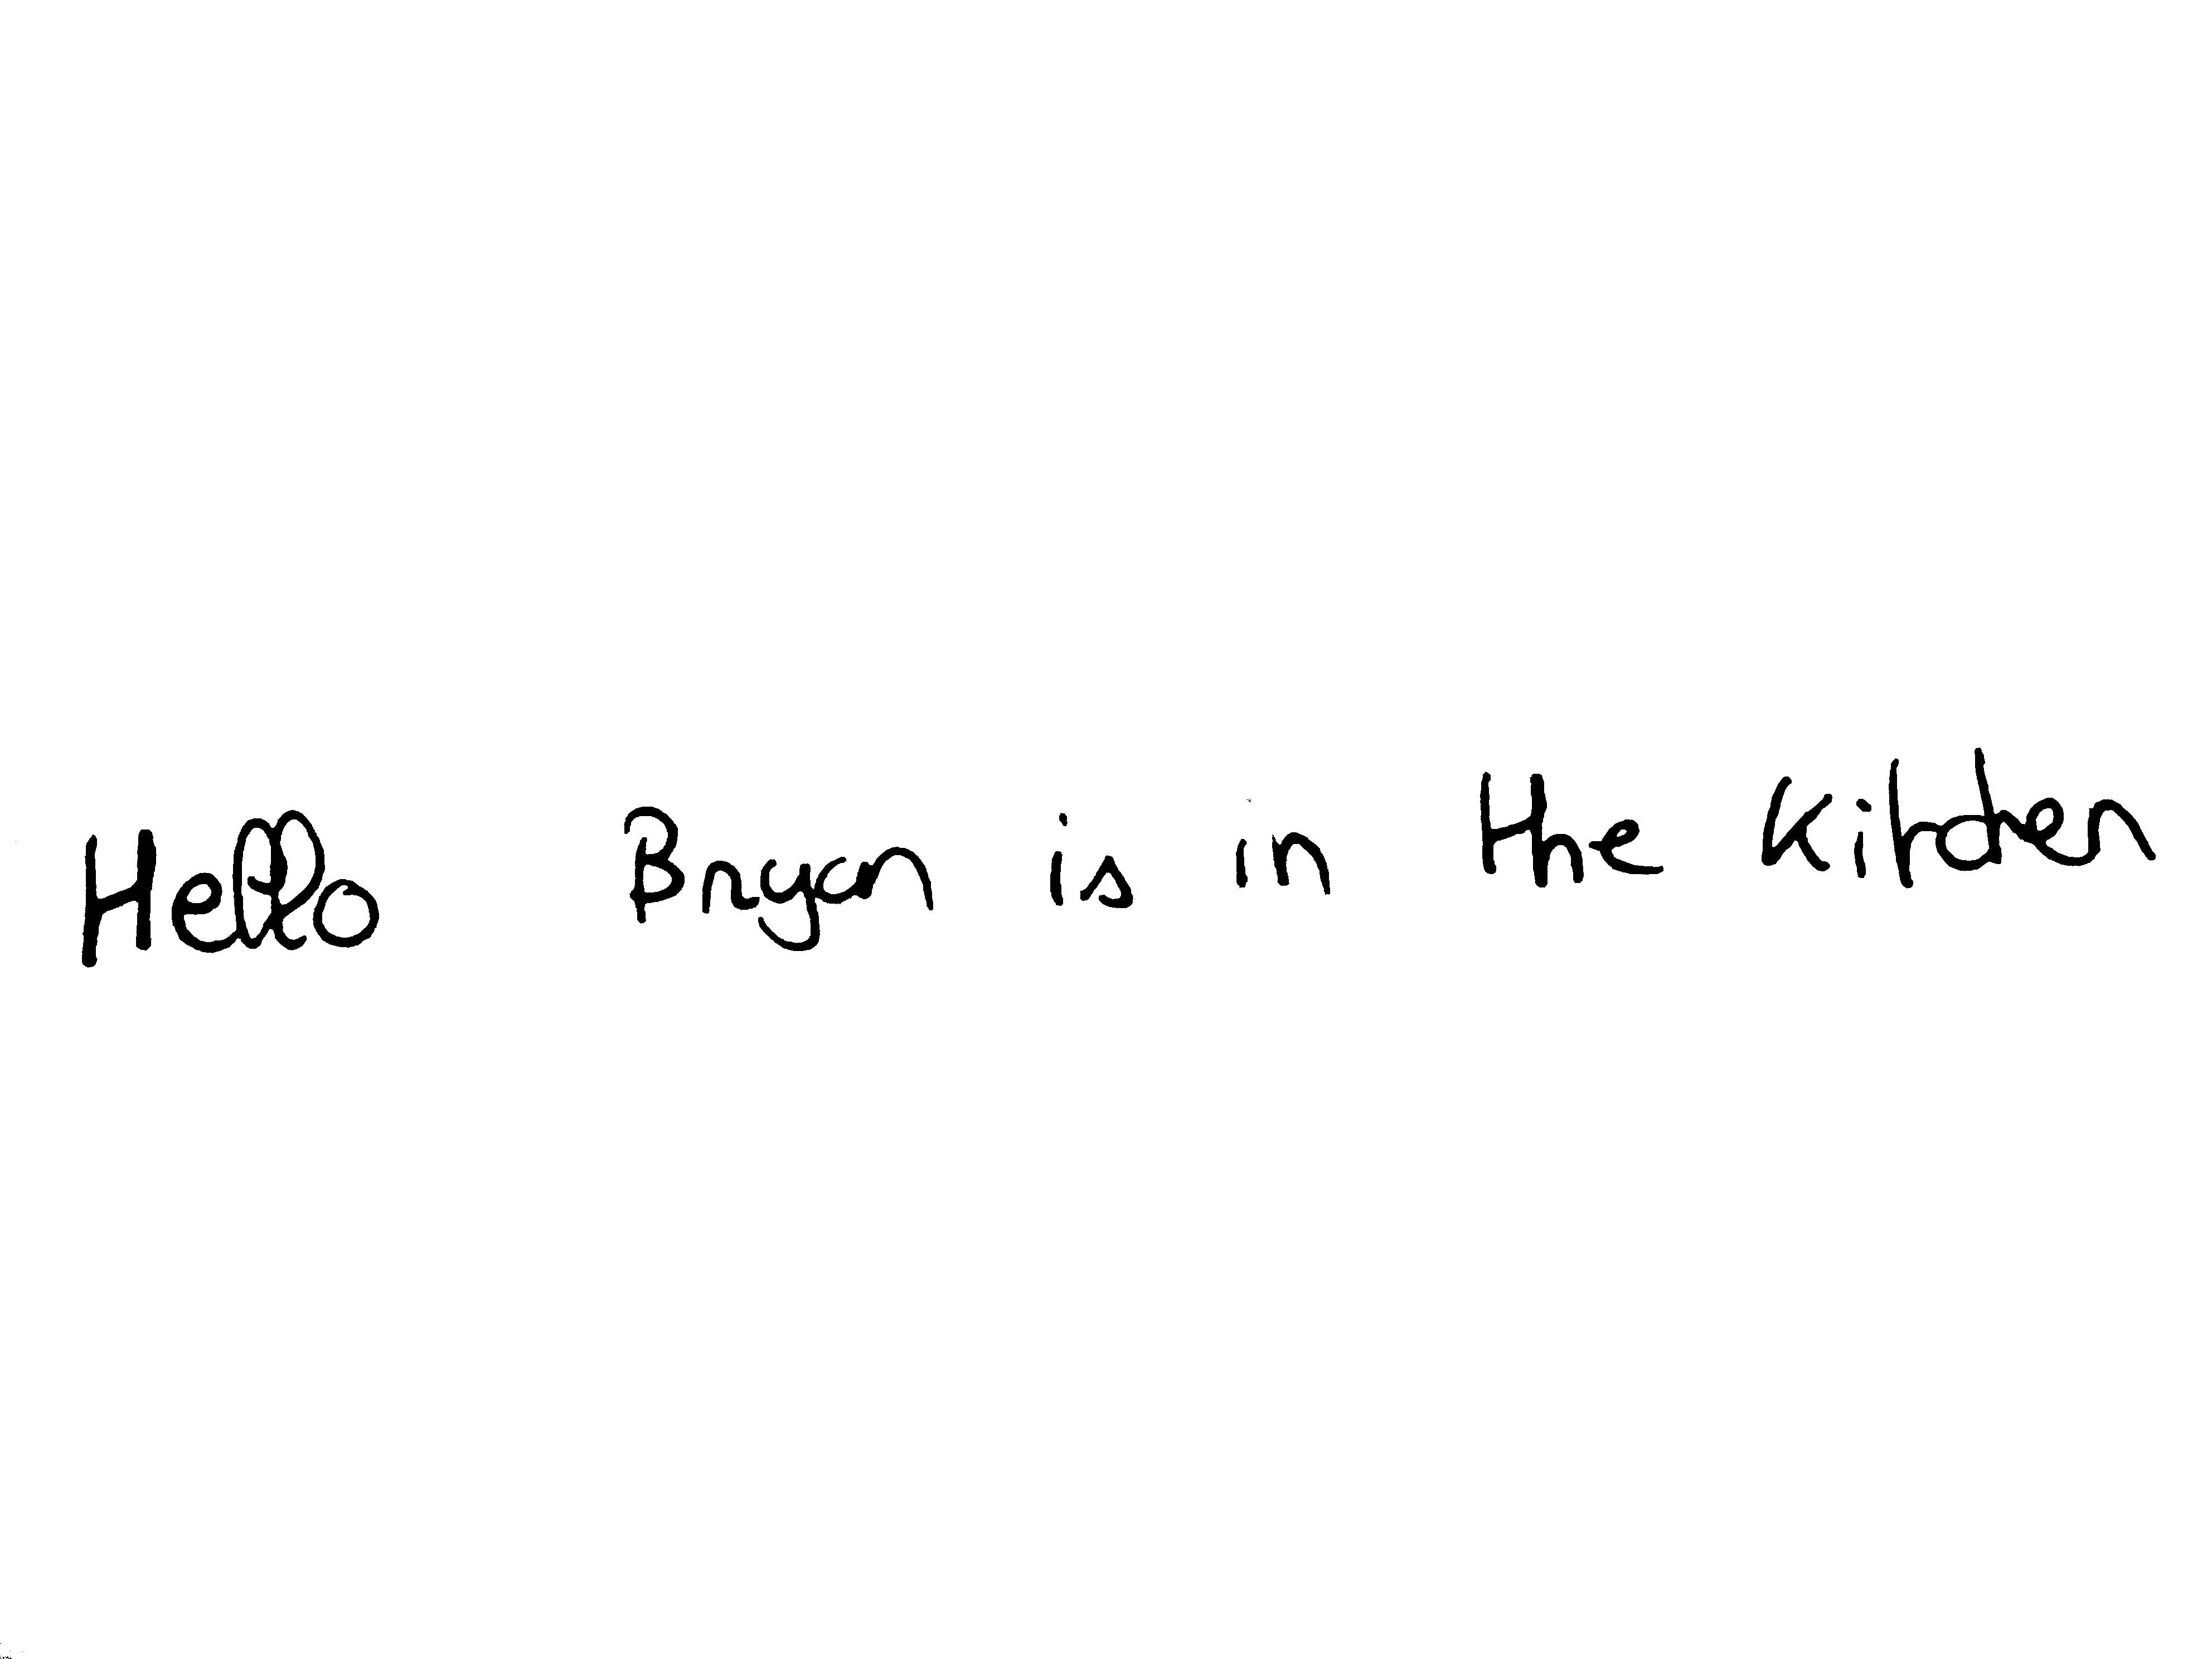 Hello Bryan is in the Kitchen